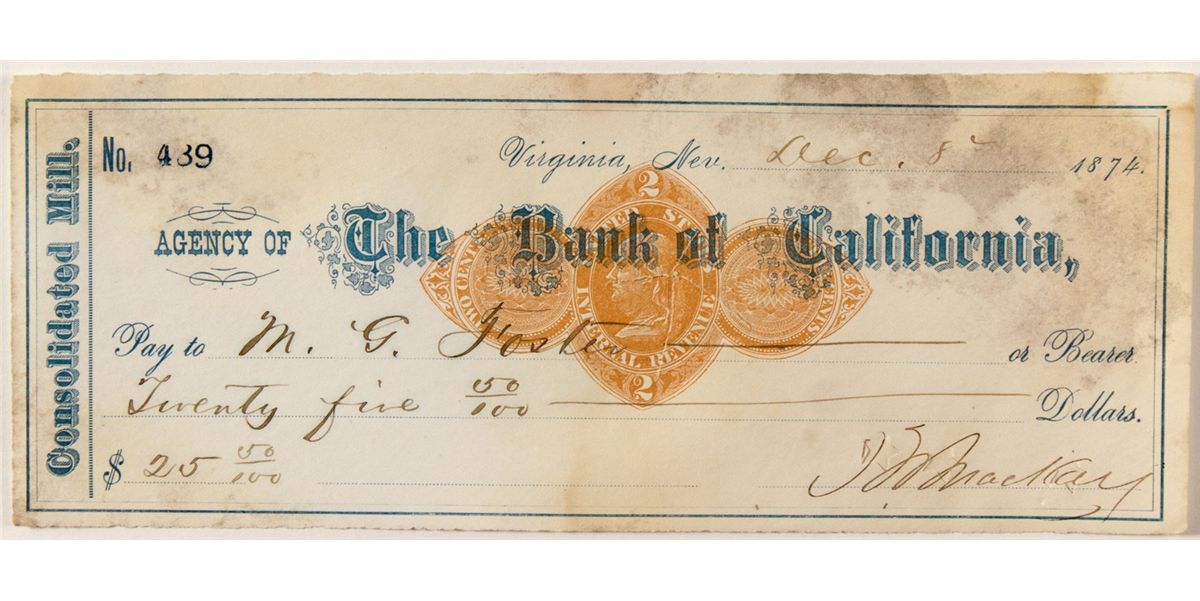 Consolidated Mill.
No. 439
Virginia, Nev. Dec. 8 1874.
AGENCY OF The Bank of California,
TWO CENTS
UNITED STATES
INTERNAL REVENUE
2
2
Pay to M. G. Foster or Bearer
Twenty five 50/100 Dollars.
$ 25 50/100
Mackay